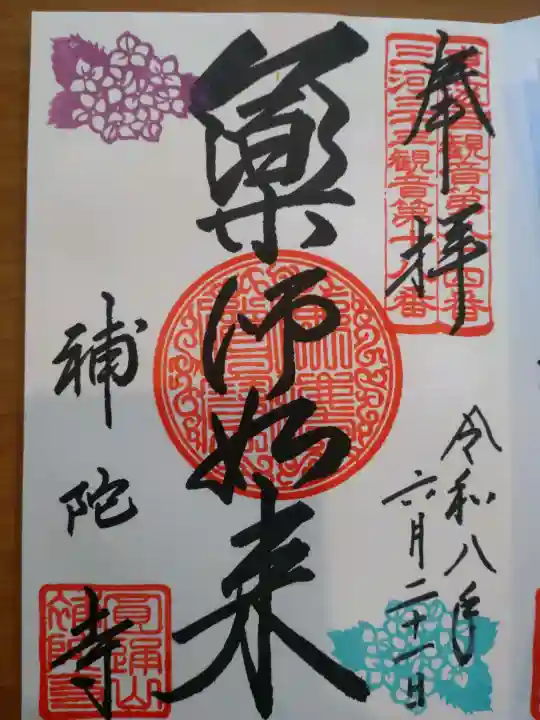 奉拝
三河三十三観音第十八番
令和八年
六月二十一日
薬師如来
補陀寺